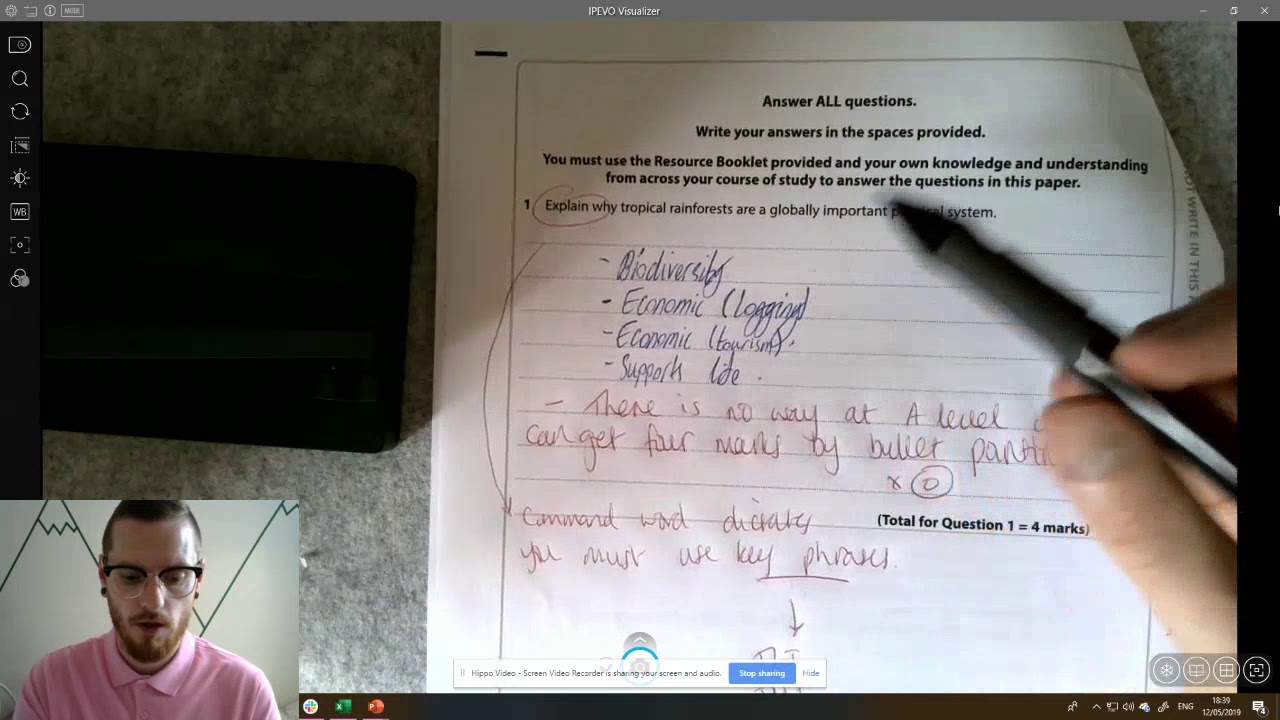 IPEVO Visualizer
MODE
WB
Answer ALL questions.
Write your answers in the spaces provided.
You must use the Resource Booklet provided and your own knowledge and understanding
from across your course of study to answer the questions in this paper.
1 Explain why tropical rainforests are a globally important system.
- Biodiversity
- Economic (logging)
- Economic (tourism).
- Support life.
- There is no way at A level
can get four marks by bullet
x 0
Command word dictates
(Total for Question 1 = 4 marks)
you must use key phrases.
NOT WRITE IN THIS
Hippo Video - Screen Video Recorder is sharing your screen and audio.
Stop sharing
Hide
ENG
18:39
12/05/2019
4